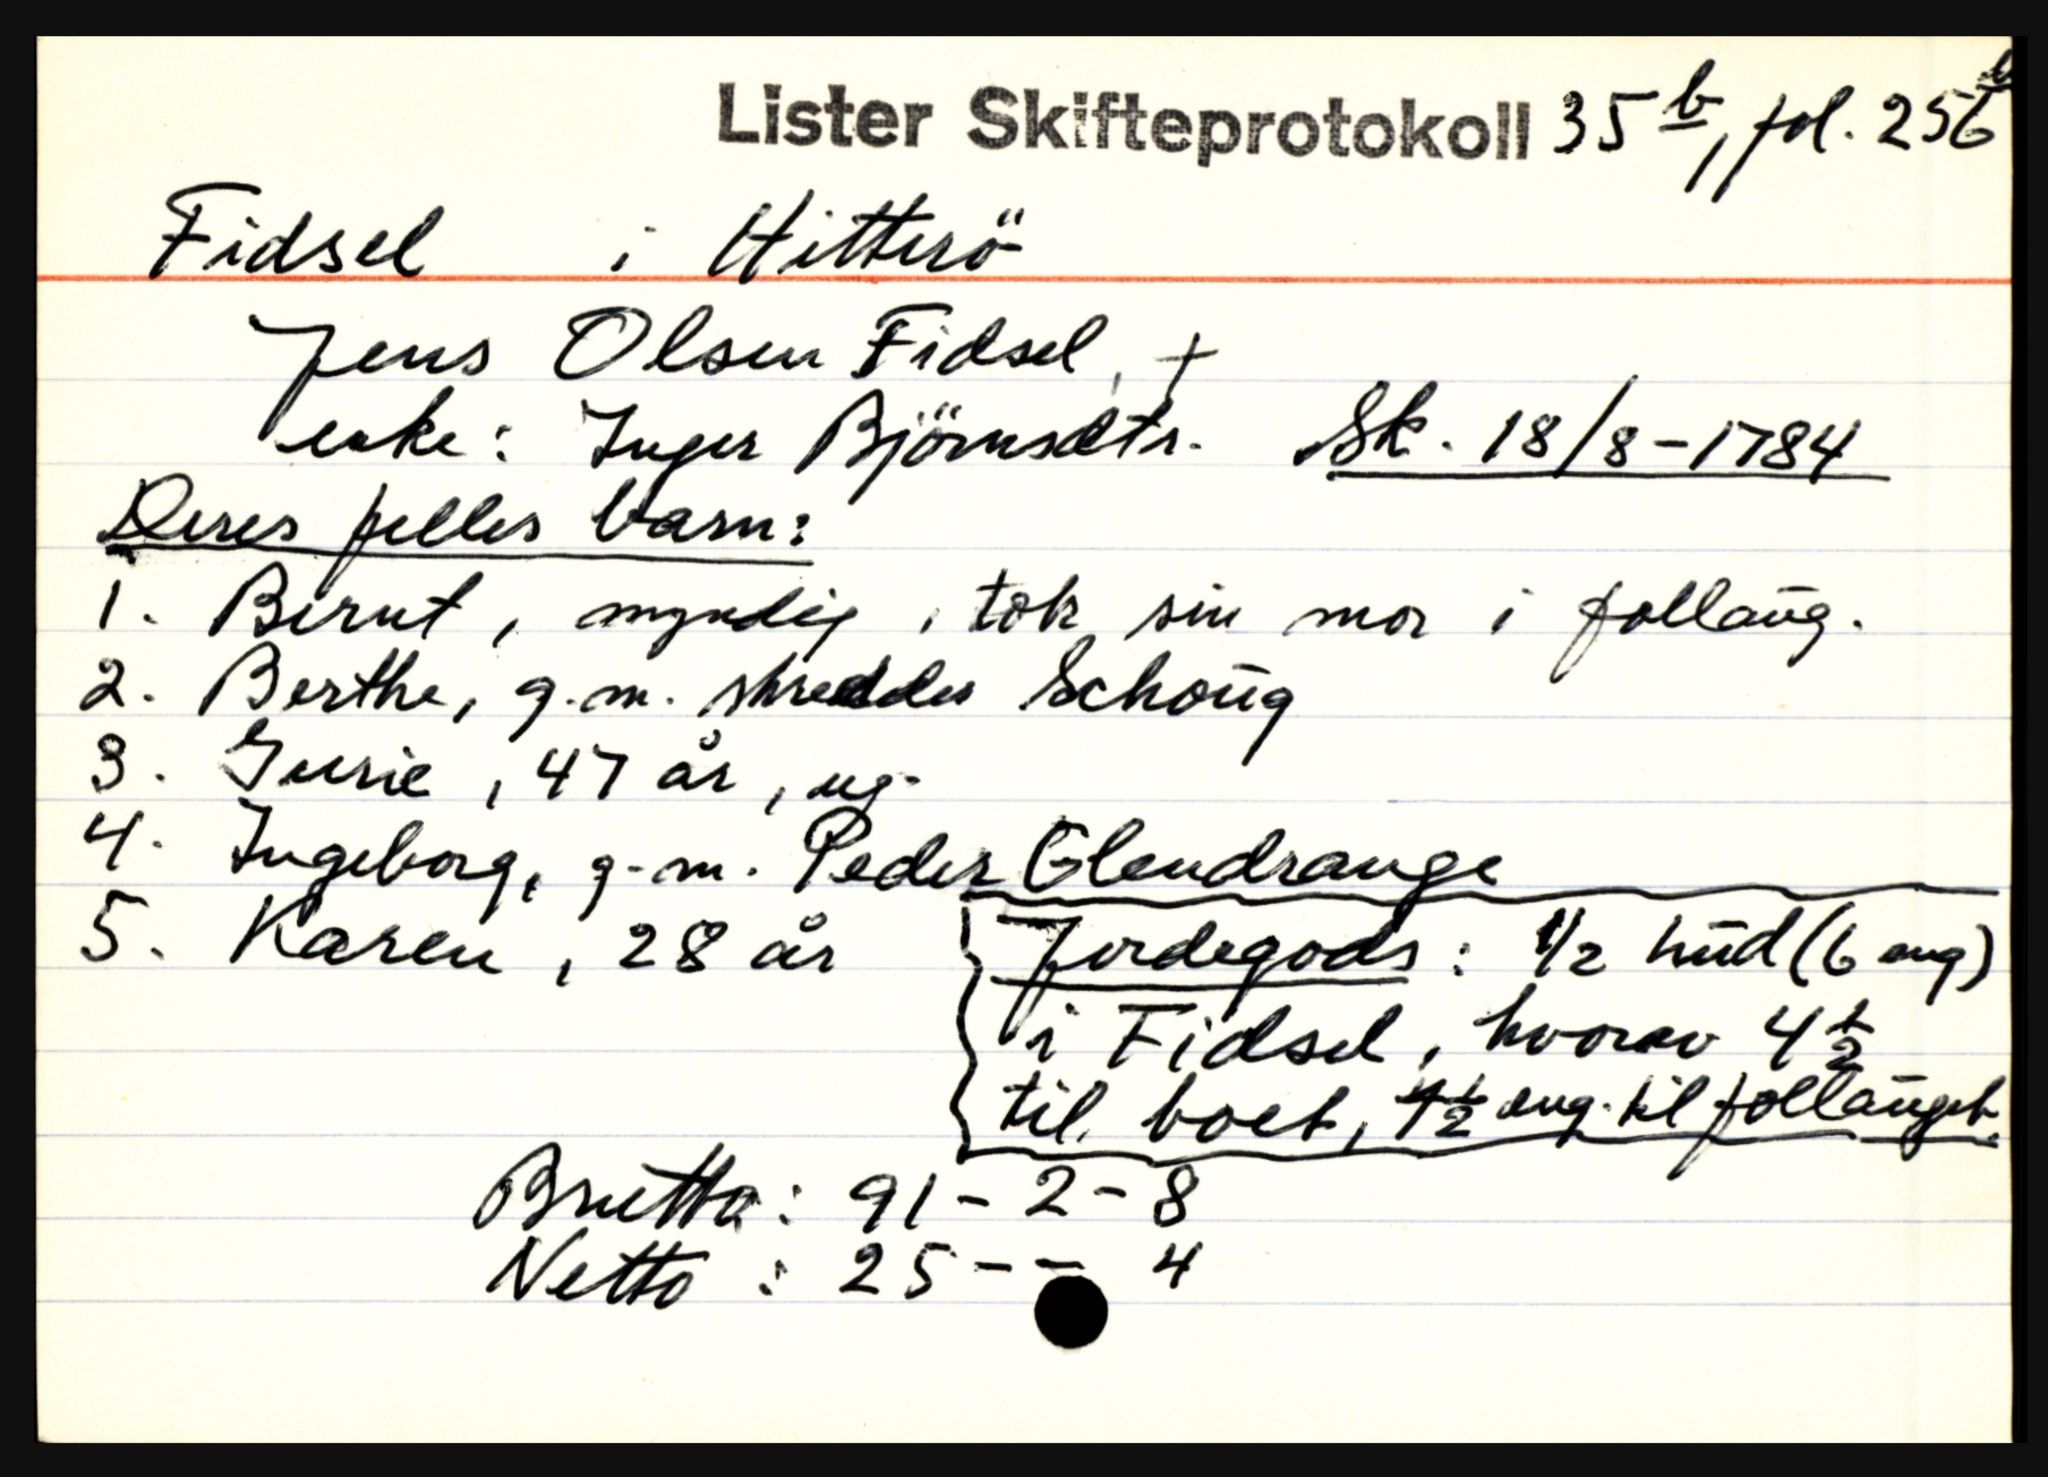 Lister Skifteprotokoll 35 b, fol. 256 b
Fidsel i Hitterö
Jens Olsen Fidsel, +
enke: Inger Björnsdtr. Sk. 18/8-1784
Deres felles barn:
1. Bernt, myndig, tok sin mor i follaug.
2. Berthe, g.m. skredder Schoug
3. Gurie, 47 år, ug.
4. Ingeborg, g.m. Peder Glendrange
5. Karen, 28 år
Jordegods: 1/2 hud (6 eng)
i Fidsel, hvorav 4 1/2
til boet, 1 1/2 eng. til follauget.
Brutto: 91 - 2 - 8
Netto: 25 - - 4